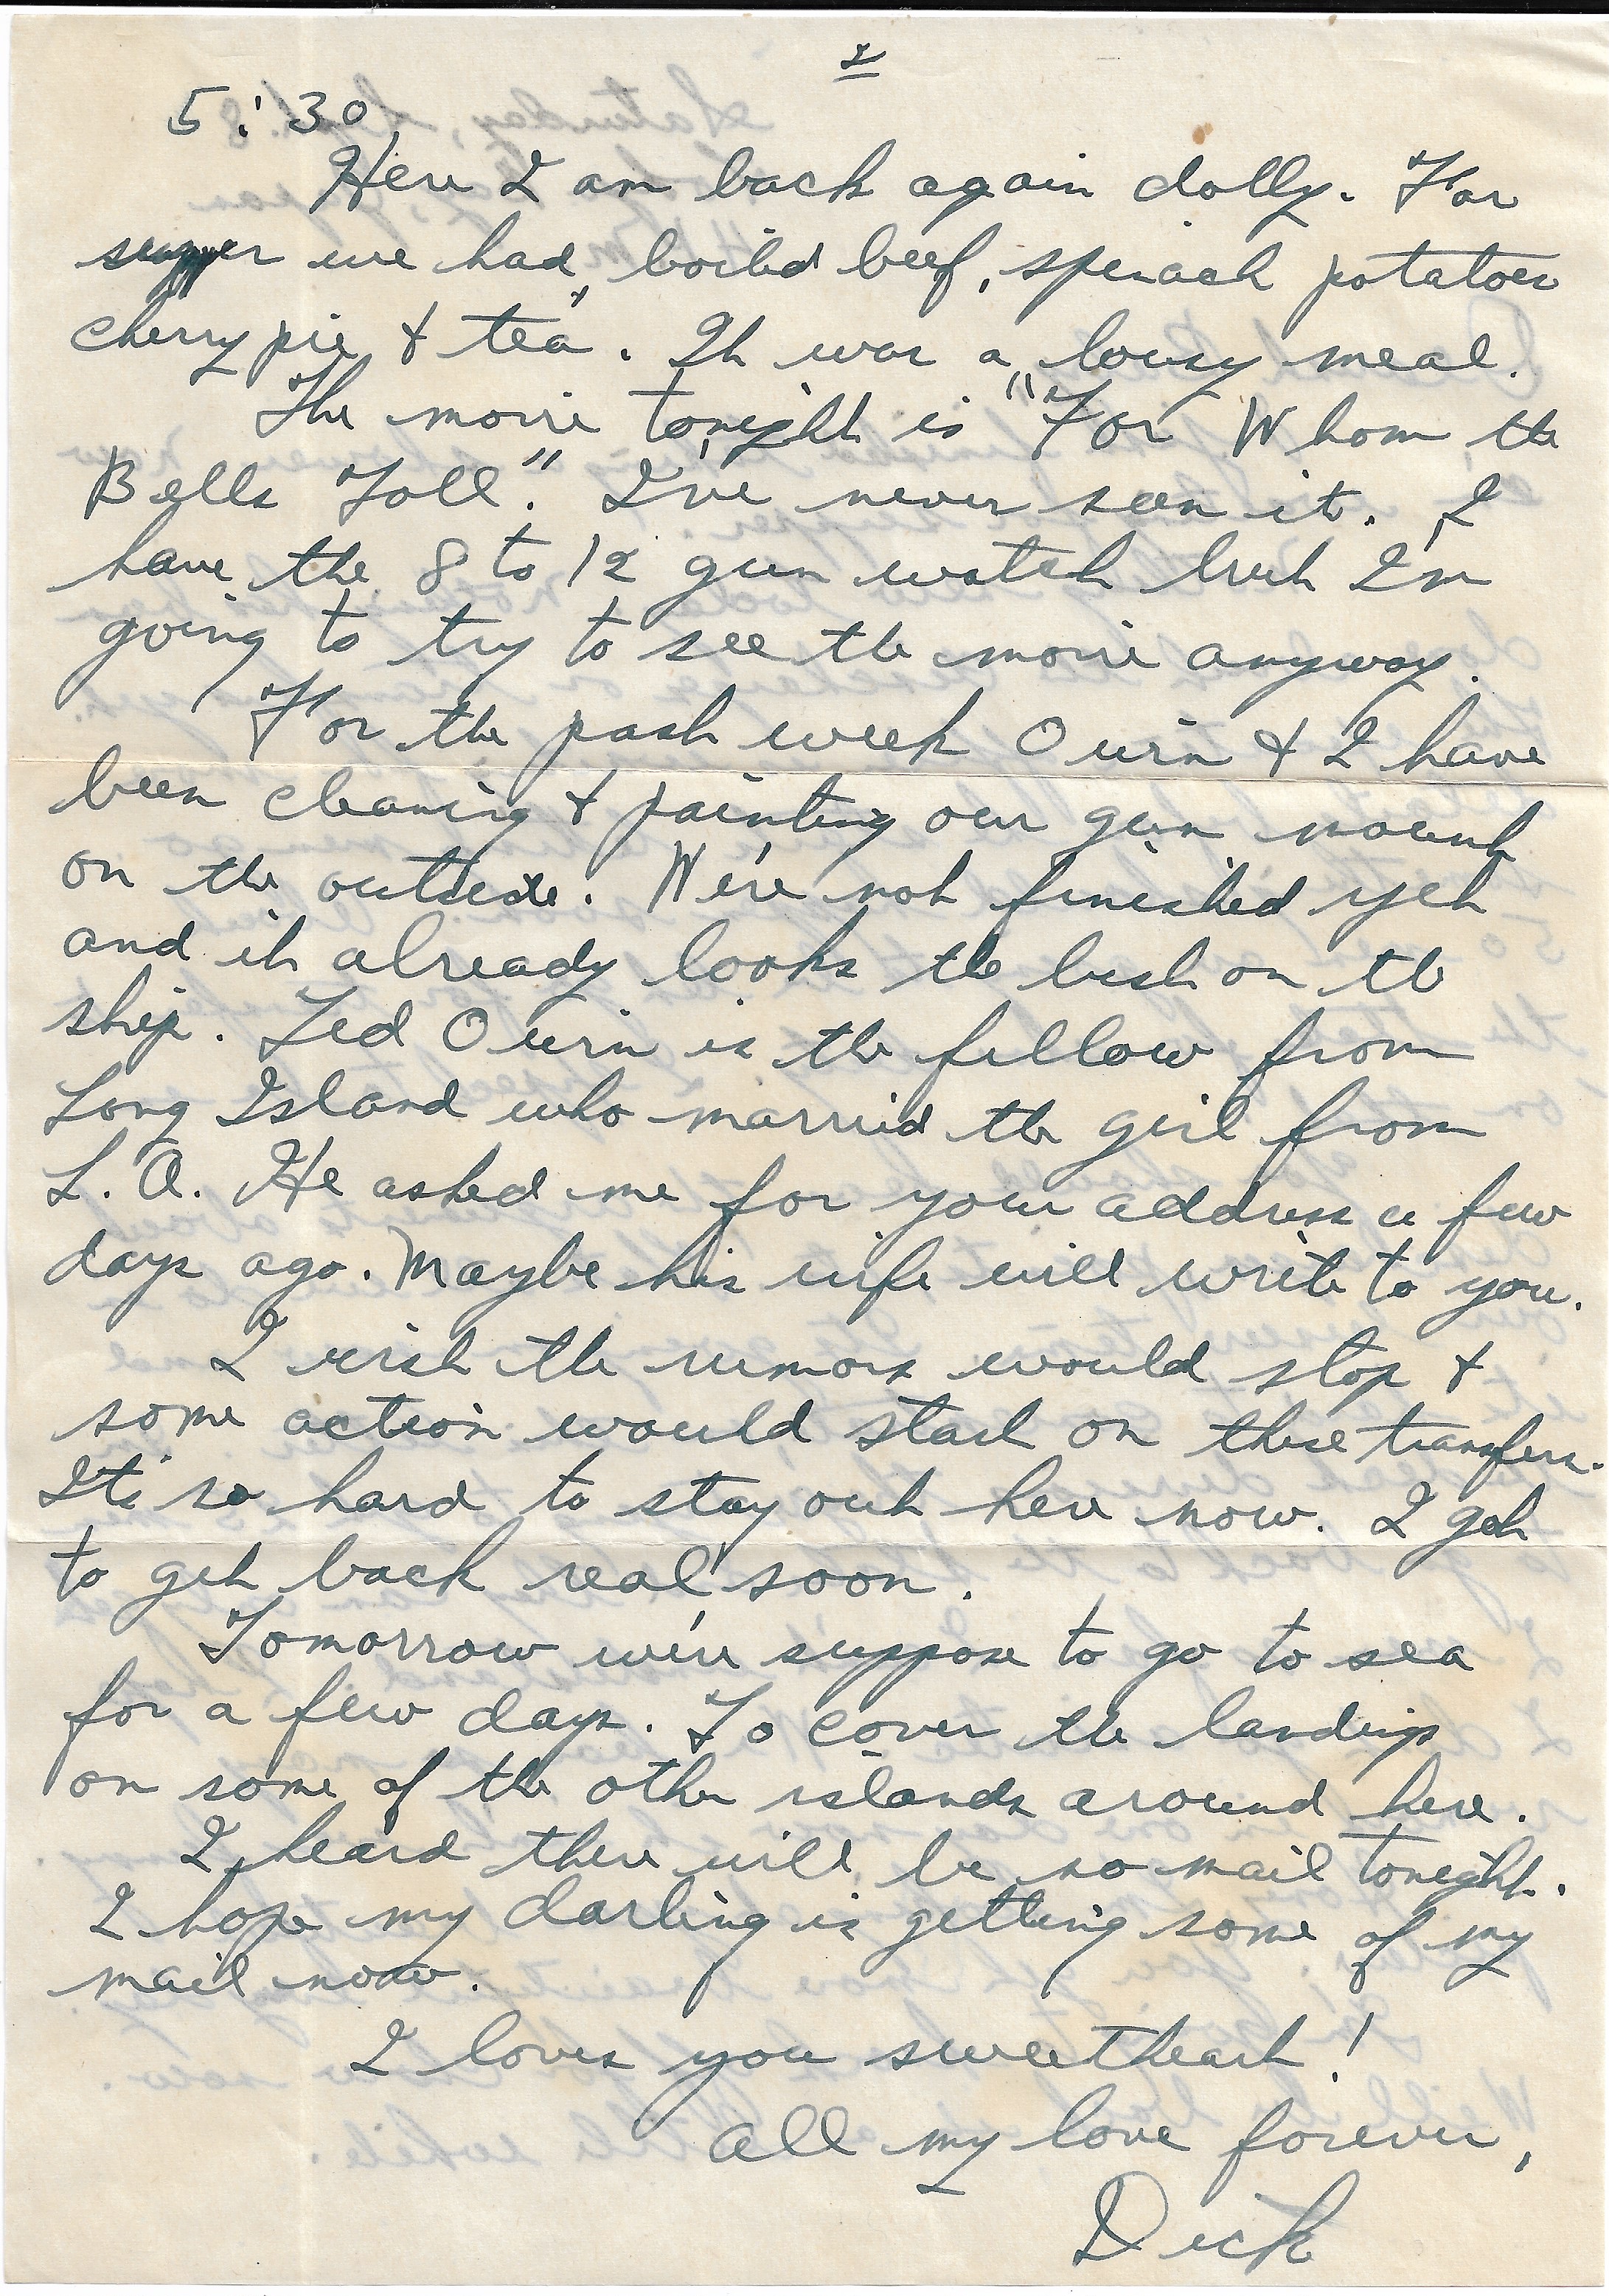 2
5:30
Here I am back again dolly. For
supper we had, boiled beef, spinach potatoes
cherry pie & "tea". It was a lousy meal.
The movie tonight is "For Whom the
Bells Toll." I've never seen it. I
have the 8 to 12 gun watch but I'm
going to try to see the movie anyway.
For the past week Owin & I have
been cleaning & painting our gun mount
on the outside. We're not finished yet
and it already looks the best on the
ship. Ted Owin is the fellow from
Long Island who married the girl from
L.A. He asked me for your address a few
days ago. Maybe his wife will write to you.
I wish the rumors would stop &
some action would start on these transfers.
It's so hard to stay out here now. I got
to get back real soon.
Tomorrow we're suppose to go to sea
for a few days. To cover the landings
on some of the other islands around here.
I heard there will be no mail tonight.
I hope my darling is getting some of my
mail now.
I loves you sweetheart!
All my love forever,
Dick